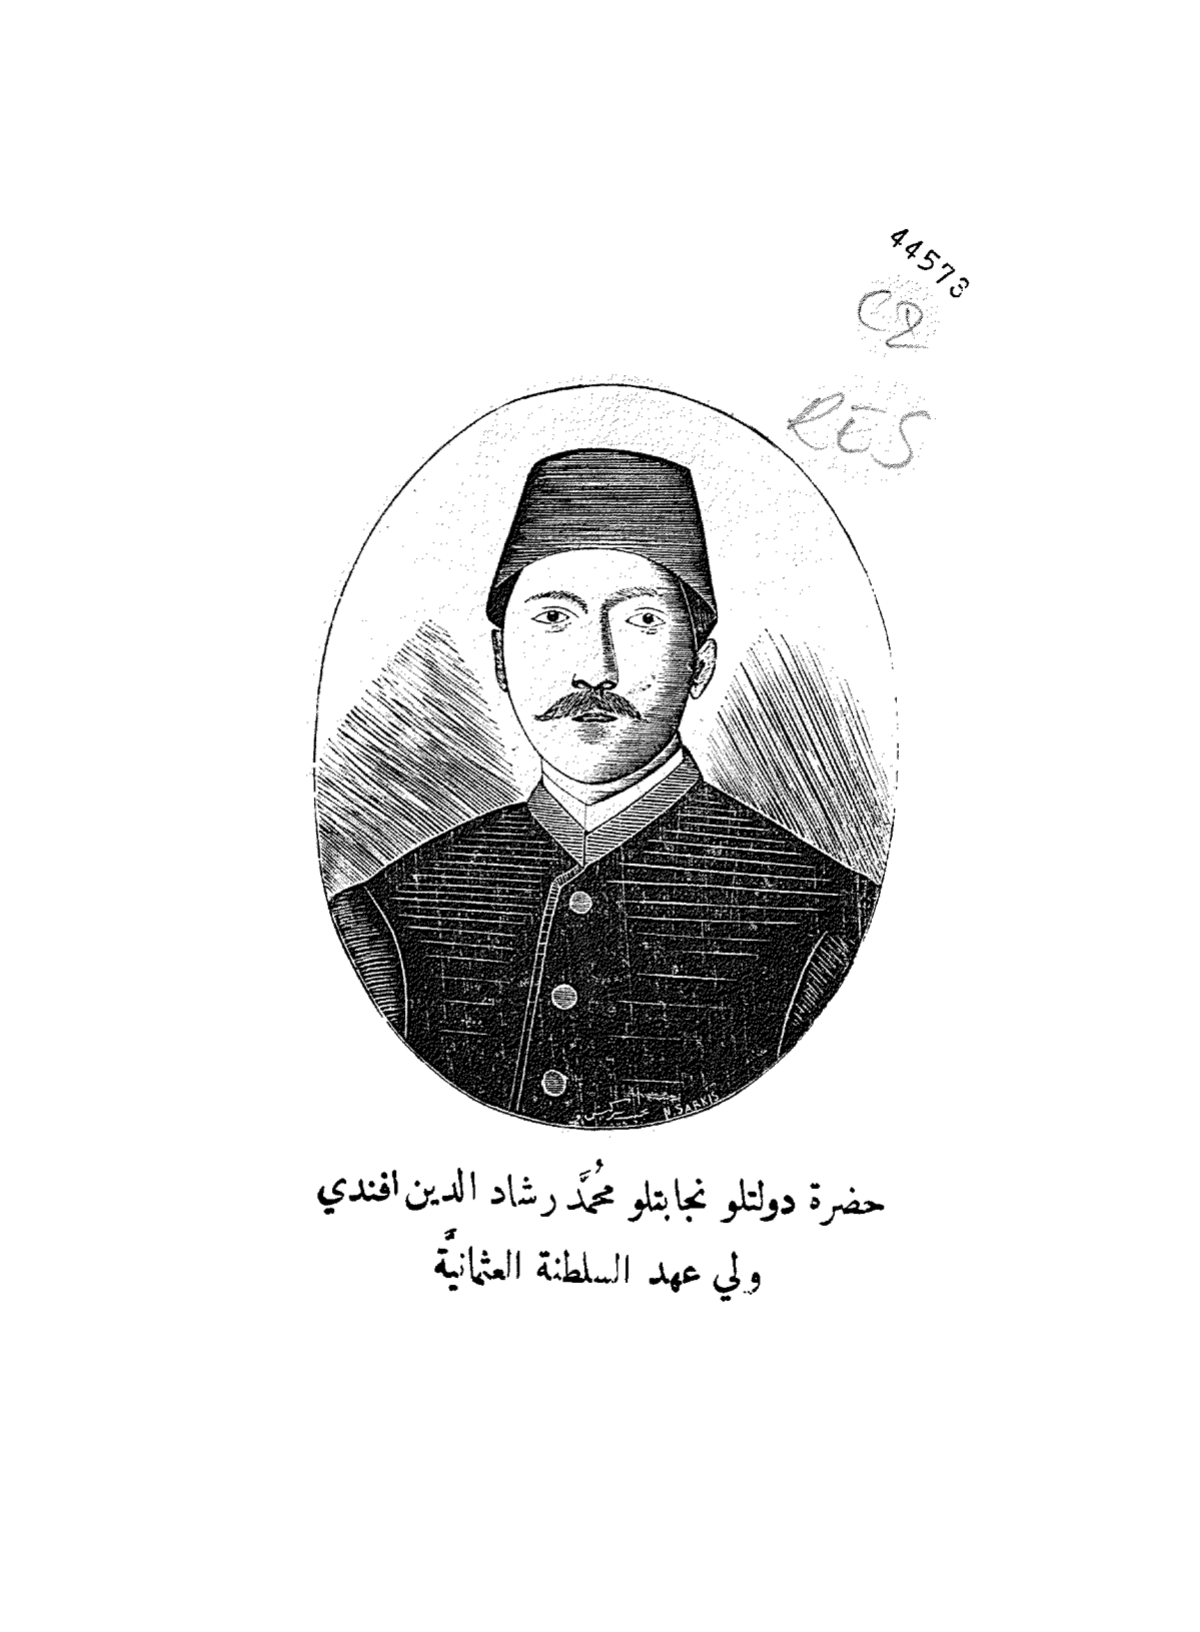 44573
C2
RES
N. SARKIS
حضرة دولتلو نجابتلو محُمَّد رشاد الدين افندي
ولي عهد السلطنة العثمانيَّة